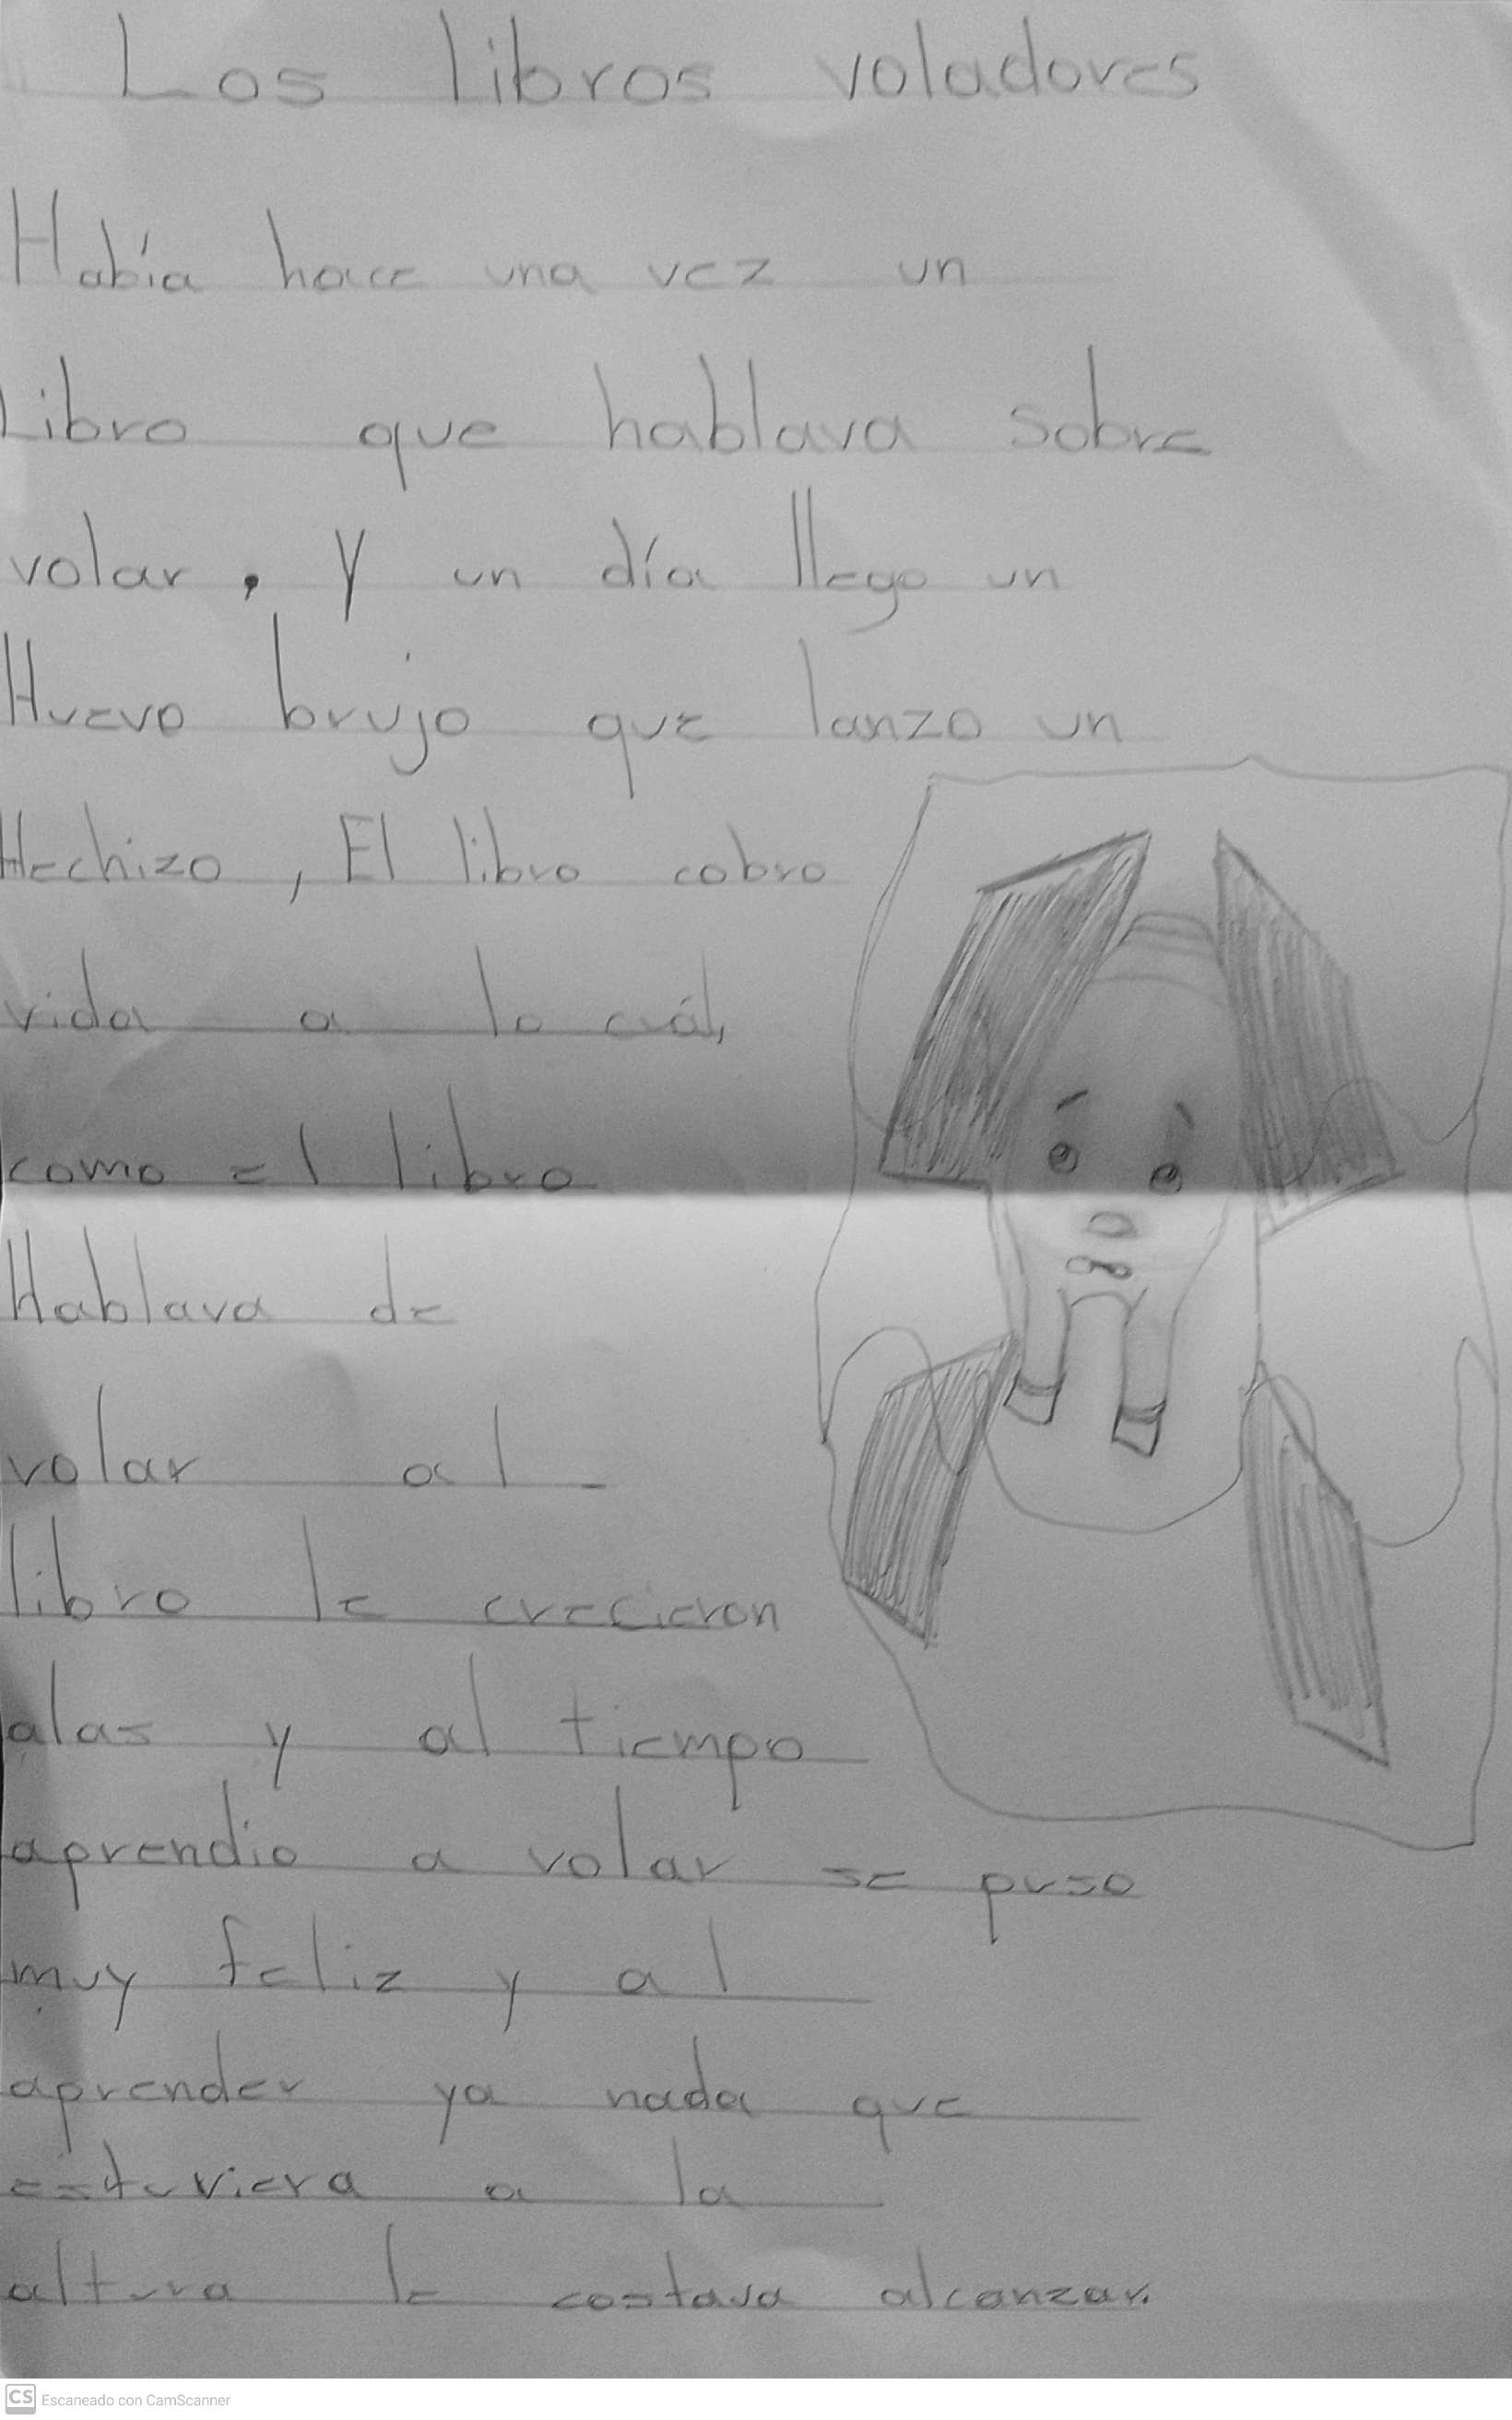 Los libros voladores
Había hace una vez un
Libro que hablava sobre
volar. Y un día llego un
Huevo brujo que lanzo un
Hechizo, El libro cobro
vida a lo cuál,
como el libro
Hablava de
volar al
libro le crecieron
alas y al tiempo
aprendio a volar se puso
muy feliz y al
aprender ya nada que
estuviera a la
altura le costava alcanzar.
CS Escaneado con CamScanner